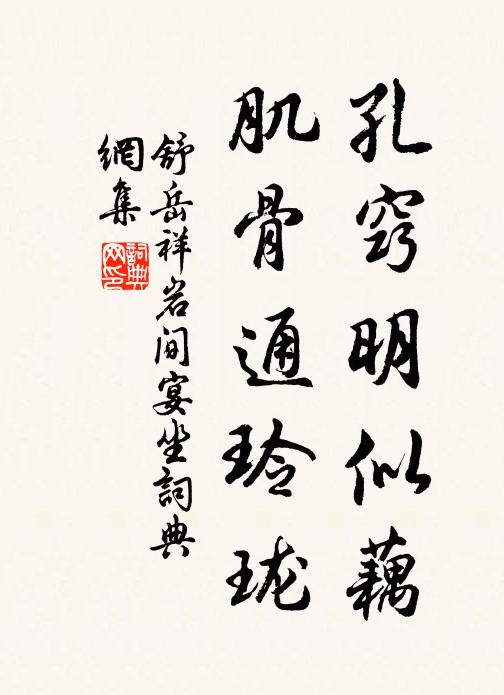 孔窍明似藕
肌骨通玲珑
舒岳祥岩间宴坐詞典
網集
詞典
网印